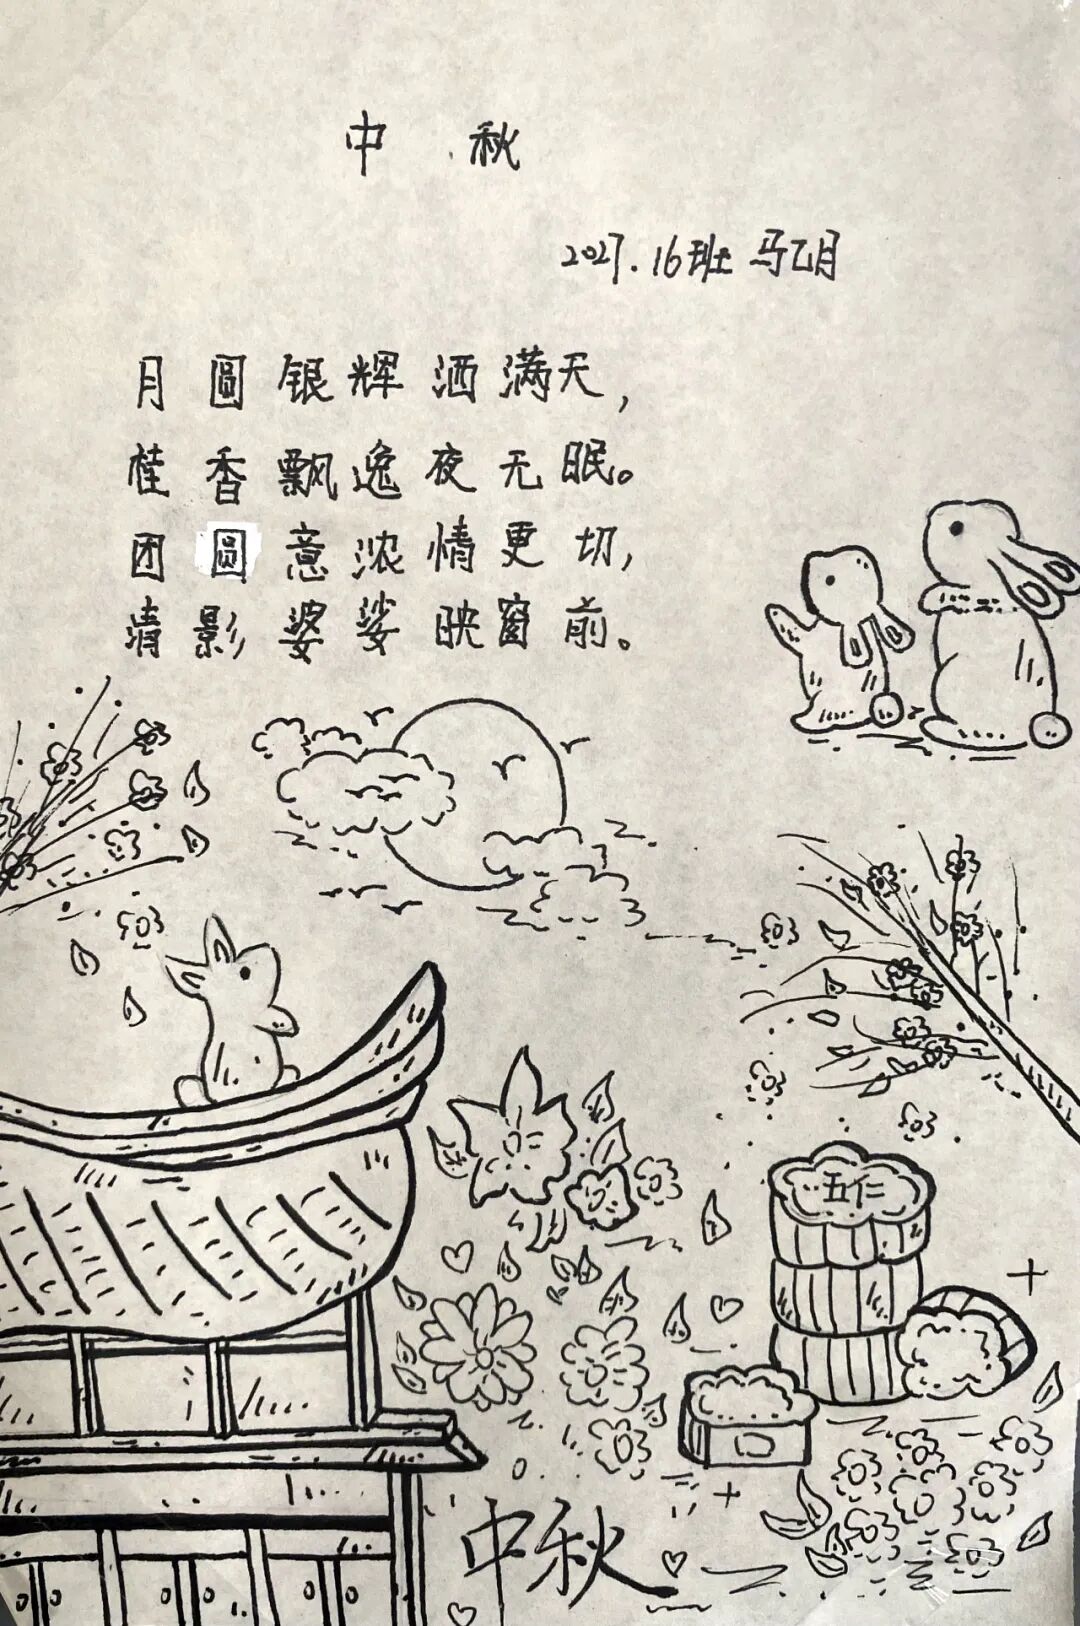 中秋
2027.16班 马乙月
月圆银辉洒满天，
桂香飘逸夜无眠。
团圆意浓情更切，
清影婆娑映窗前。
五仁
中秋